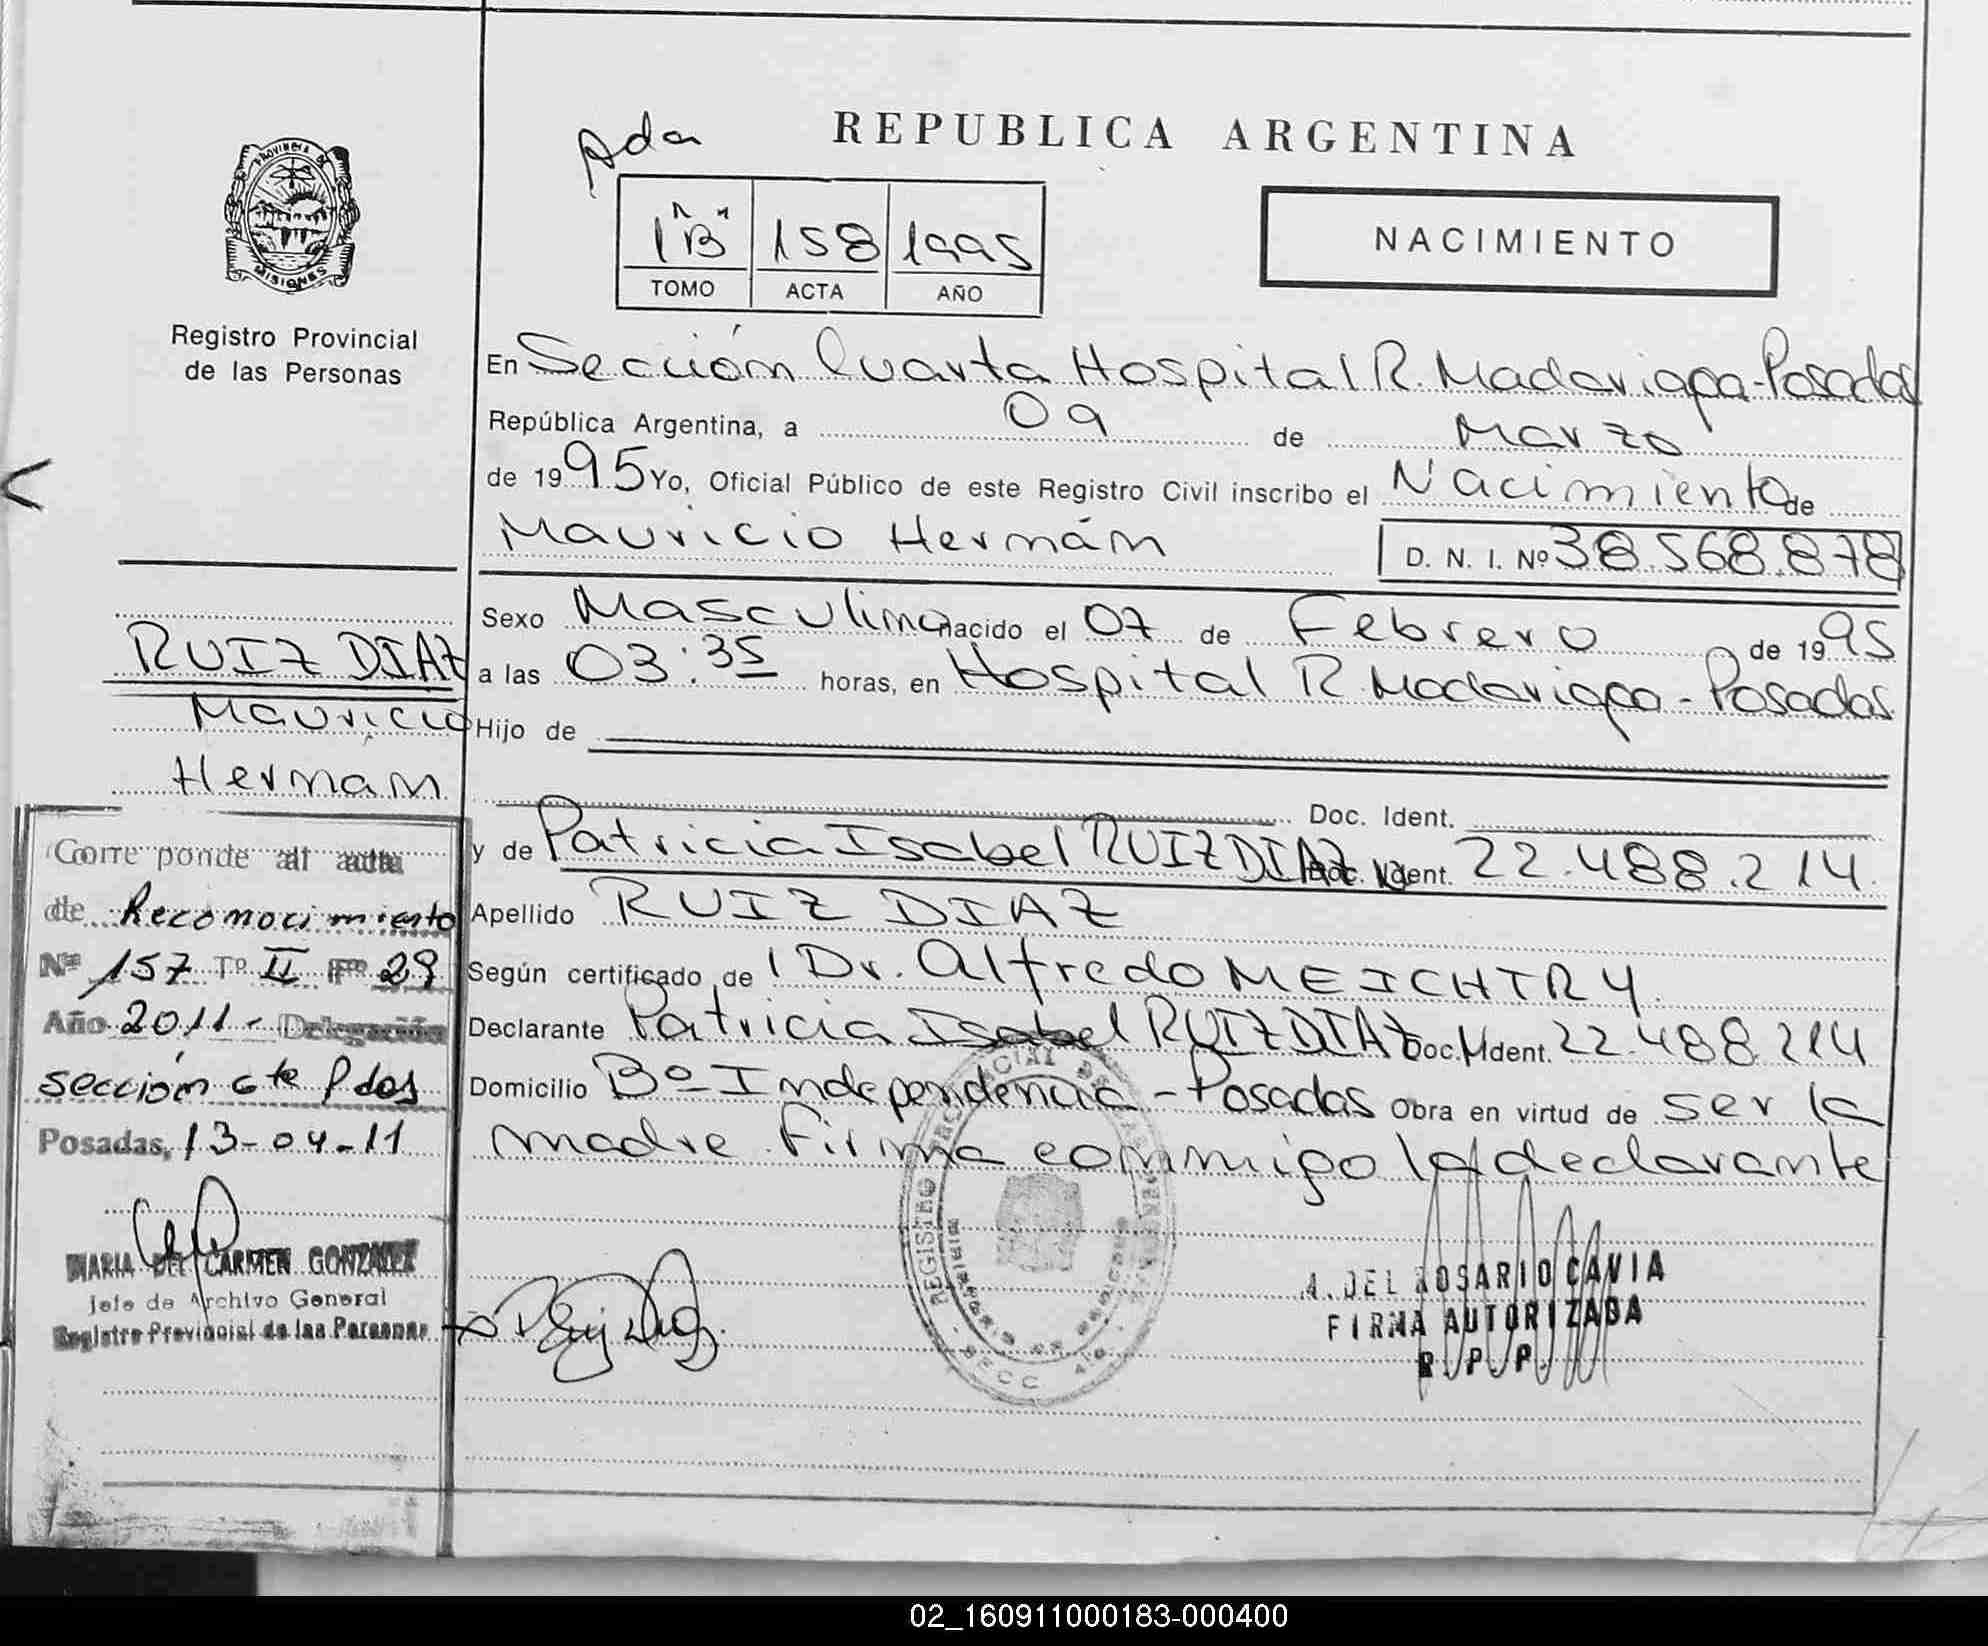 Ada
REPUBLICA ARGENTINA
PROVINCIA DE
MISIONES
1 "B" 158 1995
TOMO ACTA AÑO
NACIMIENTO
Registro Provincial
de las Personas
En Sección Cuarta Hospital R. Madariaga-Posadas
República Argentina, a 09 de Marzo
de 1995 Yo, Oficial Público de este Registro Civil inscribo el Nacimiento de
Mauricio Hermán D. N. I. Nº 38.568.878
Sexo Masculino nacido el 07 de Febrero de 1995
a las 03:35 horas, en Hospital R. Madariaga - Posadas
Hijo de
Doc. Ident.
y de Patricia Isabel RUIZ DIAZ Doc. Ident. 22.488.214
Apellido RUIZ DIAZ
Según certificado de Dr. Alfredo MEICHTRY
Declarante Patricia Isabel RUIZ DIAZ Doc. Ident. 22.488.214
Domicilio Bº Independencia - Posadas Obra en virtud de ser la
madre. Firma conmigo la declarante
RUIZ DIAZ
Mauricio
Herman
Corre ponde al acta
de Reconocimiento
Nº 157 Tº II Fº 29
Año 2011 - Delegación
sección 6te Pdas
Posadas, 13-04-11
MARIA DEL CARMEN GONZALEZ
Jefe de Archivo General
Registro Provincial de las Personas
A. DEL ROSARIO CAVIA
FIRMA AUTORIZADA
R. P. P.
REGISTRO
SECC. 4a.
02_160911000183-000400